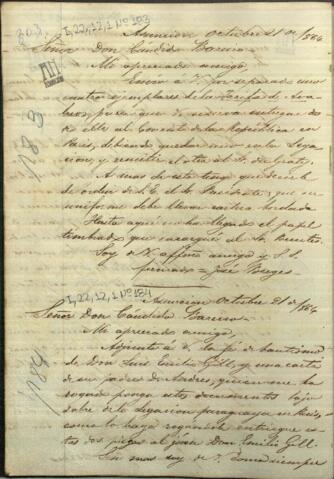 I,22,12,1 Nº 183
Asuncion Octubre 21 de /864
Señor Don Candido Bareiro
Mi apreciado amigo.
Envio á V. por separado unos
cuatro ejemplares de la Tarifa de Ava-
para que se sirva entregar dos
de ellos al Consul de la Republica en
Paris, debiendo quedar uno en la Lega-
cion, y remitir el otro al Sr.
A mas de esto tengo que decirle
de orden de S. E. el Sr. Presidente, que su
uniforme debe llevar
Hasta aquí no ha llegado el papel
timbrado que encargué al Sr. Benites.
Soy de V. affmo amigo y S. S.
firmado = José Berges
183
I,22,12,1 Nº 184
Asuncion Octubre 21 de /864
Señor Don Cándido Bareiro.
Mi apreciado amigo,
Adjunto á V. la fé de bautismo
de Don Luis Emilio Gill, y una carta
de su padre Dn Andres, quien me ha
rogado ponga estos documentos bajo
sobre de la Legacion paraguaya en Paris,
como lo hago rogandole entregue es-
tas dos piezas al jóven Don Emilio Gill.
Sin mas soy de V. como siempre
184